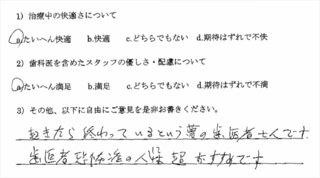 1) 治療中の快適さについて
a.たいへん快適 b.快適 c.どちらでもない d.期待はずれで不快
2) 歯科医を含めたスタッフの優しさ・配慮について
a.たいへん満足 b.満足 c.どちらでもない d.期待はずれで不満
3) その他、以下に自由にご意見を是非お書きください。
起きたら終わっているという夢の歯医者さんです
歯医者恐怖症の人には超おすすめです